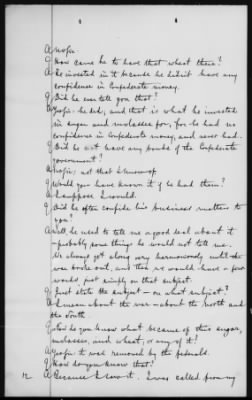 A Yes sir.
Q How came he to have that wheat there?
A He invested in it because he didn't have any
confidence in Confederate money.
Q Did he ever tell you that?
A Yes sir: he did; and that is what he invested
in sugar and molasses for, for he had no
confidence in Confederate money, and never had.
Q Did he not have any bonds of the Confederate
government?
A No sir; not that I know of.
Q Would you have known it if he had them?
A I suppose I would.
Q Did he often confide his business matters to
you?
A Well, he used to tell me a good deal about it
- probably some things he would not tell me.
We always got along very harmoniously until the
war broke out, and then we would have a few
words just simply on that subject.
Q Just state the subject - on what subject?
A I mean about the war - about the north and
the South.
Q Do you know what became of this sugar,
molasses, and wheat, or any of it?
A Yes sir: it was removed by the federals.
Q How do you know that?
A Because I saw it. I was called from my